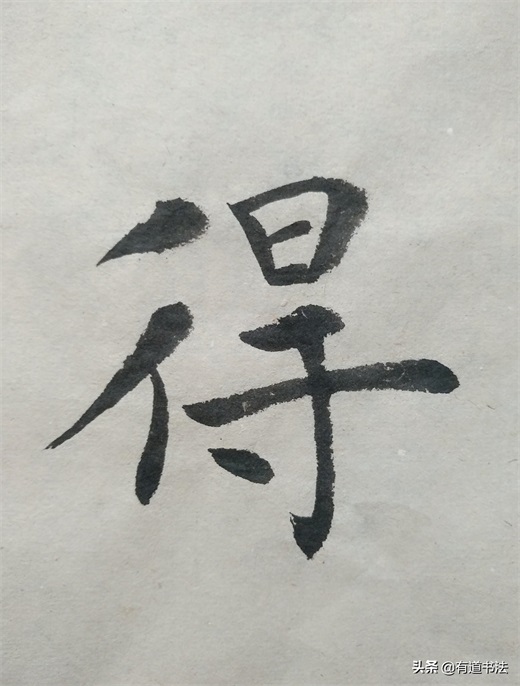 得
头条 @有道书法